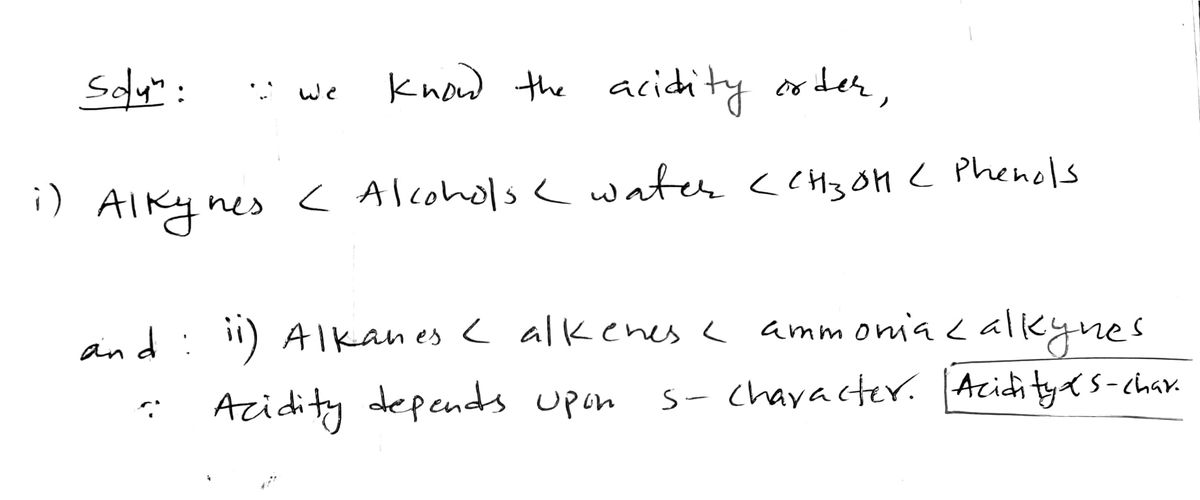 Solun: ∵ we know the acidity order,
i) Alkynes < Alcohols < water < CH3OH < Phenols
and : ii) Alkanes < alkenes < ammonia < alkynes
∵ Acidity depends upon s- character. Acidity ∝ s-char.